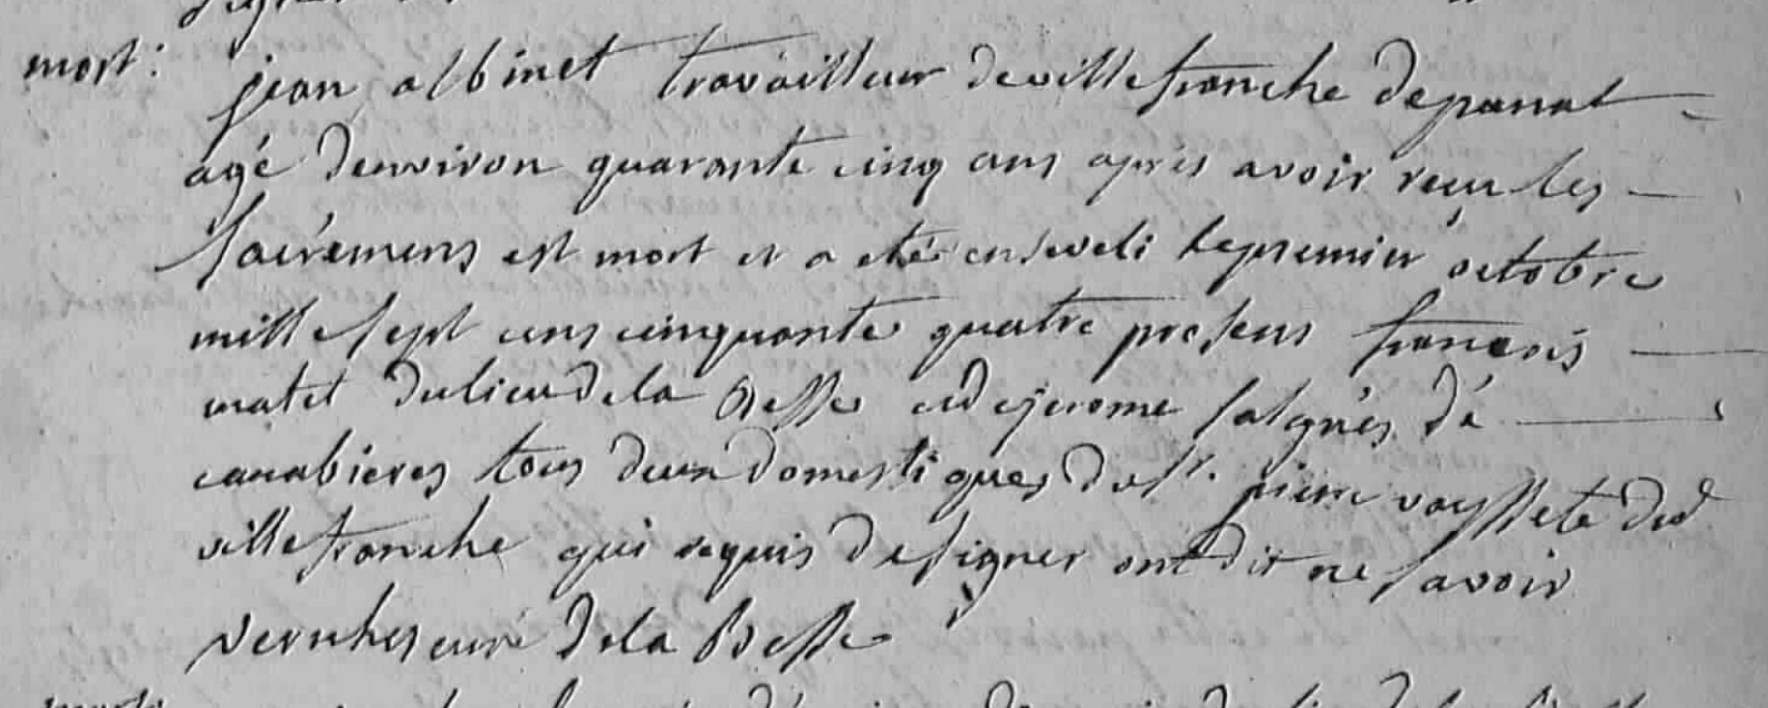 mort: jean albinet travailleur de villefranche de panat
agé denviron quarante cinq ans apres avoir reçu les
sacremens est mort et a eté enseveli le premier octobre
mille sept cens cinquante quatre presens françois
matet du lieu de la Besse et jerome salgues de
canabieres tous deux domestiques du sr. pierre vayssete dud
villefranche qui requis de signer ont dit ne savoir
vernhes curé de la Besse